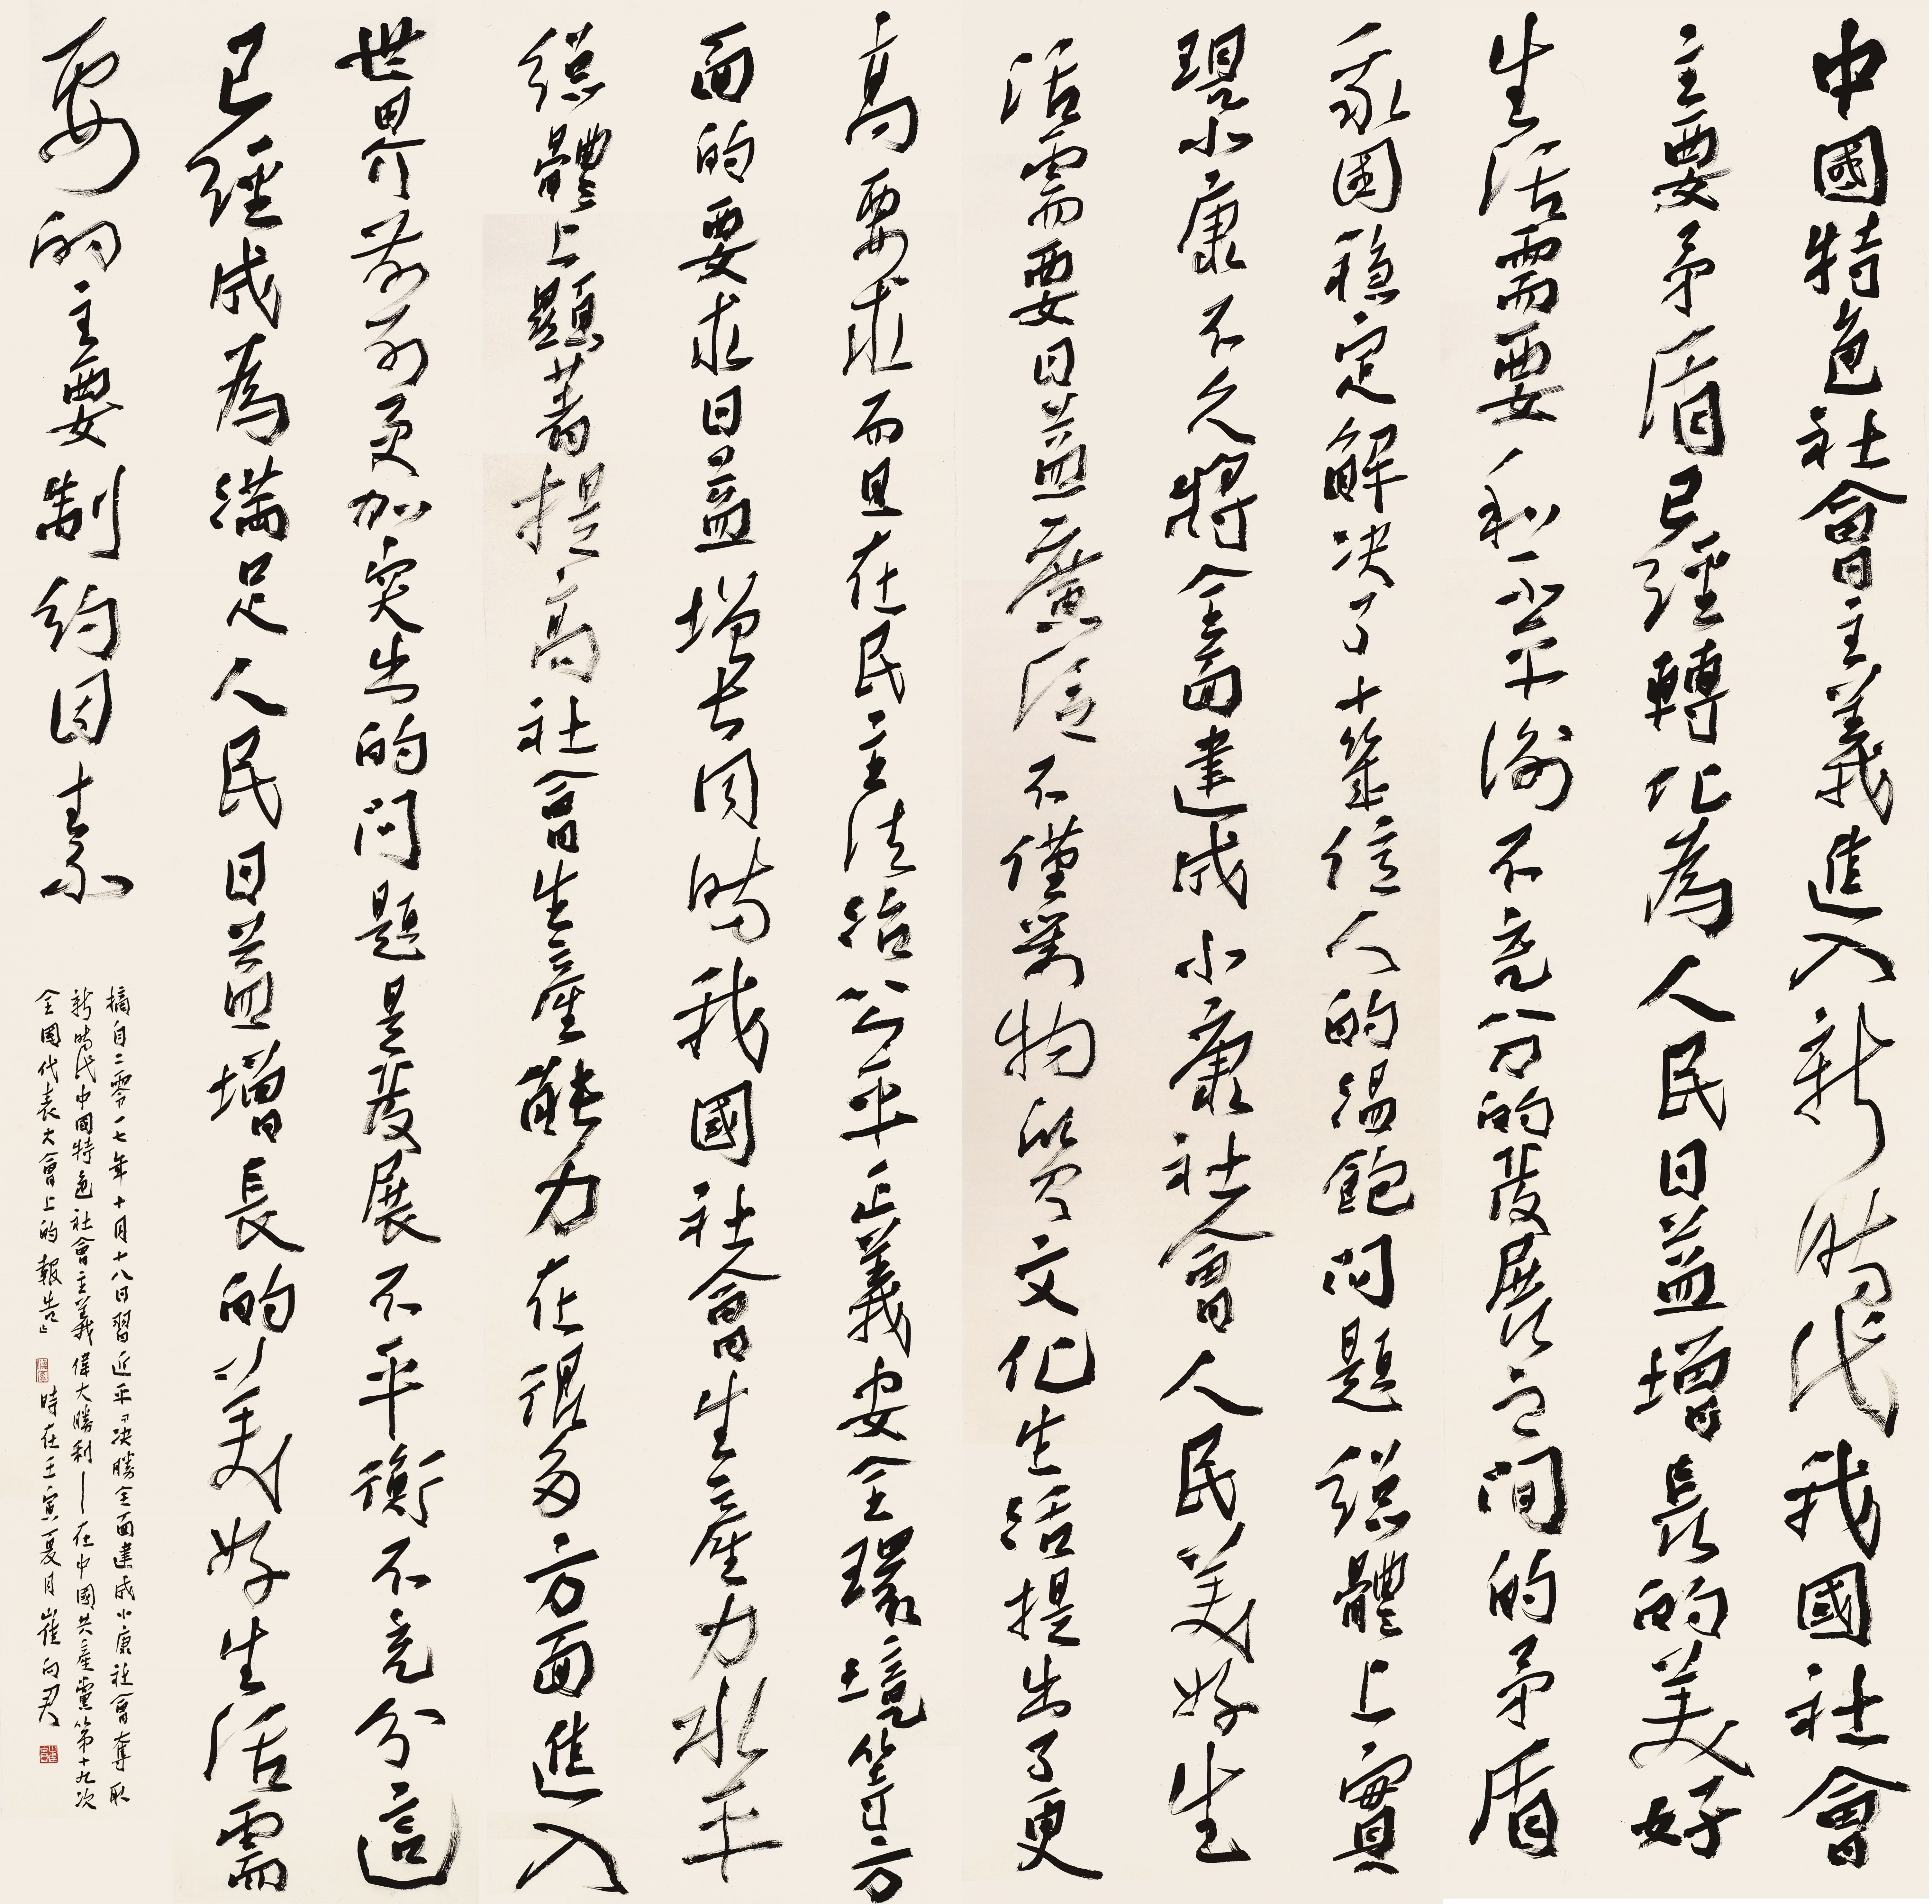 中國特色社會主義進入新時代我國社會
主要矛盾已經轉化為人民日益增長的美好
生活需要和不平衡不充分的發展之間的矛盾
我國穩定解決了十幾億人的溫飽問題總體上實
現小康不久將全面建成小康社會人民美好生
活需要日益廣泛不僅對物質文化生活提出了更
高要求而且在民主法治公平正義安全環境等方
面的要求日益增長同時我國社會生產力水平
總體上顯著提高社會生產能力在很多方面進入
世界前列更加突出的問題是發展不平衡不充分這
已經成為滿足人民日益增長的美好生活需
要的主要制約因素
摘自二零一七年十月十八日習近平《決勝全面建成小康社會奪取
新時代中國特色社會主義偉大勝利——在中國共產黨第十九次
全國代表大會上的報告》
時在壬寅夏月崔向君